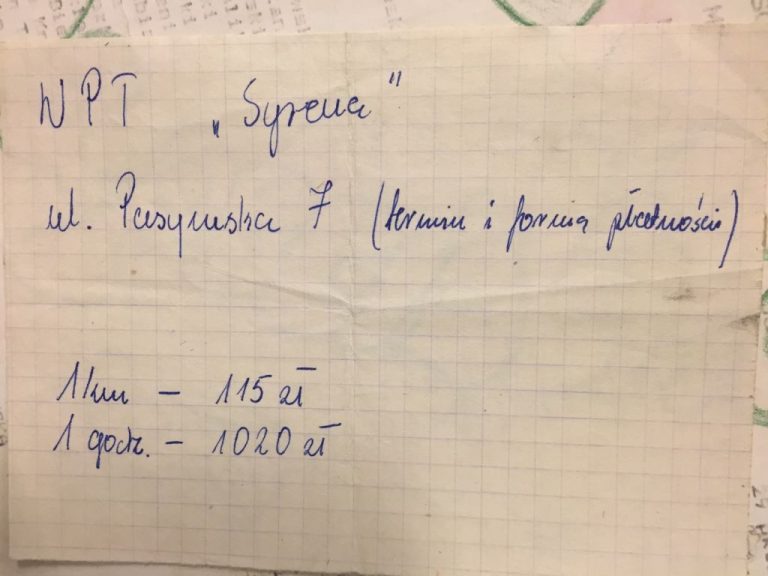 WPT „Syrena"
ul. Pasymska 7 (termin i forma płatności)
1 km – 115 zł
1 godz. – 1020 zł